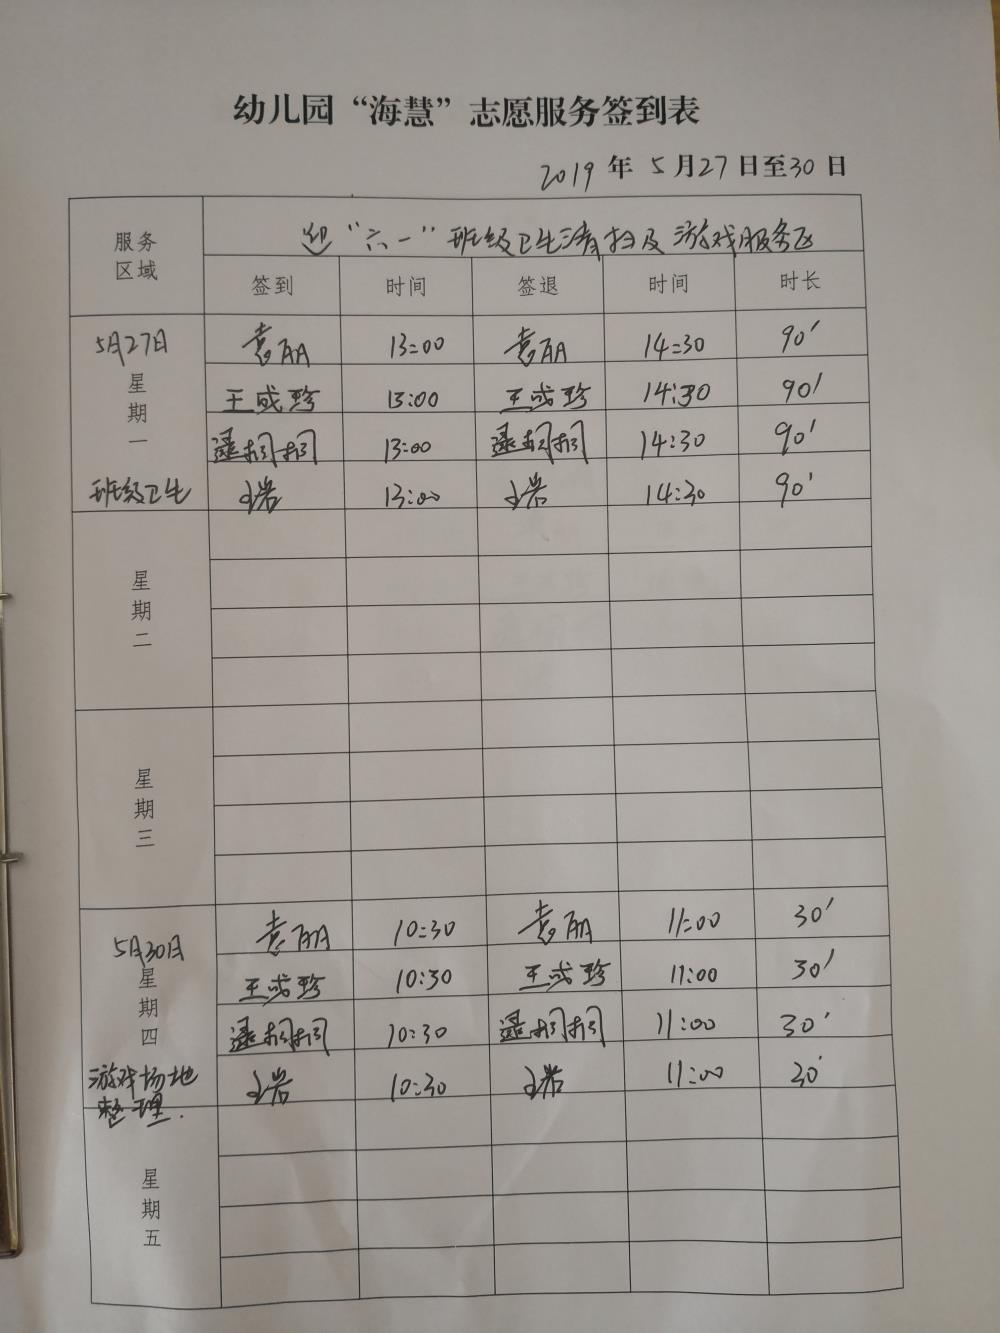 幼儿园“海慧”志愿服务签到表
2019 年 5 月 27 日至 30 日
服务区域 迎“六一”班级卫生清扫及游戏服务区
签到 时间 签退 时间 时长
5月27日 星期一 班级卫生
袁丽 13:00 袁丽 14:30 90′
王成珍 13:00 王成珍 14:30 90′
逯桐桐 13:00 逯桐桐 14:30 90′
13:00 14:30 90′
星期二
星期三
5月30日 星期四 游戏场地整理.
袁丽 10:30 袁丽 11:00 30′
王成珍 10:30 王成珍 11:00 30′
逯桐桐 10:30 逯桐桐 11:00 30′
10:30 11:00 30′
星期五